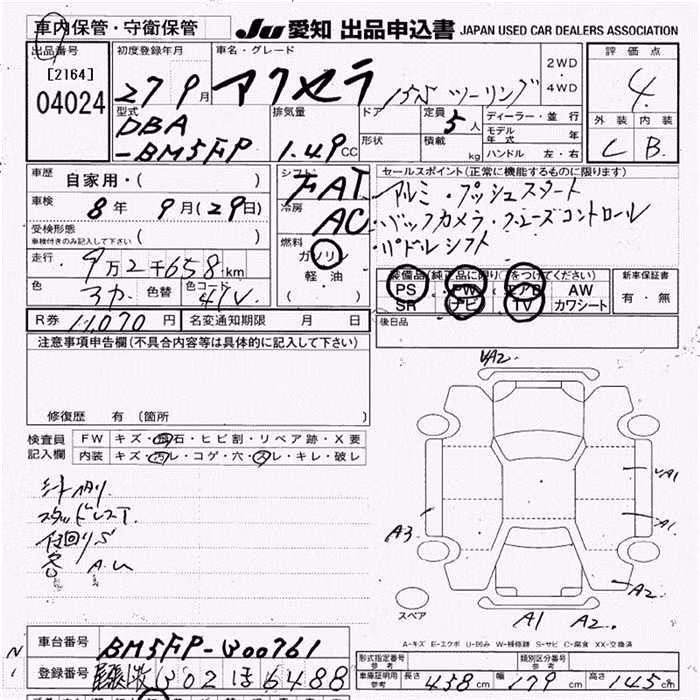 車内保管・守衛保管
Ju 愛知 出品申込書 JAPAN USED CAR DEALERS ASSOCIATION
出品番号
[2164]
04024
初度登録年月
27 9月
車名・グレード
アクセラ 15S ツーリング
2WD
・
4WD
評価点
4
外装 内装
C B
型式
DBA
-BM5FP
排気量
1.49 CC
ドア
形状
定員
5人
積載
kg
ディーラー・並行
モデル年式 年
ハンドル 左・右
車歴
自家用・( )
車検
8年 9月(29日)
受検形態
車検付きのみ記入して下さい ( )
走行
9万2千658km
色
色替
色コード
41V
シフト
FAT
冷房
AC
燃料
ガソリン
軽・油
( )
セールスポイント(正常に機能するものに限ります)
アルミ・プッシュスタート
・バックカメラ・クルーズコントロール
・パドルシフト
装備品(純正品に限り○をつけてください)
PS PW エアB AW
SR ナビ TV カワシート
新車保証書
有・無
後日品
R券 11,070円
名変通知期限 月 日
注意事項申告欄(不具合内容等は具体的に記入して下さい)
修復歴 有 (箇所 )
検査員
記入欄
FW キズ・飛石・ヒビ割・リペア跡・X要
内装 キズ・汚レ・コゲ・穴・スレ・キレ・破レ
シートスリレ
スタッドレスT
下回りS
A.U
UA2
UA1
A1
A3
A2
A1 A2
スペア
A-キズ E-エクボ U-凹み W-補修跡 S-サビ C-腐食 XX-交換済
車台番号
BM5FP-300761
登録番号
302 ほ 6488
形式指定番号
参考
類別区分番号
参考
車庫証明用
参考
長さ 458cm 幅 179cm 高さ 145cm